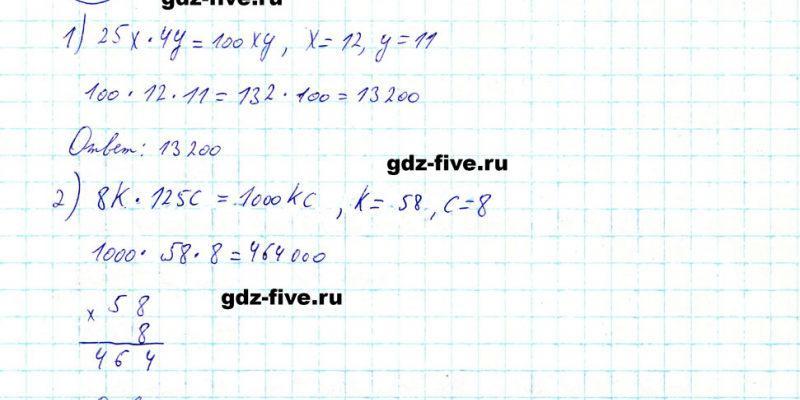 gdz-five.ru
1) 25x · 4y = 100xy, x = 12, y = 11
100 · 12 · 11 = 132 · 100 = 13200
Ответ: 13200
gdz-five.ru
2) 8k · 125c = 1000kc, k = 58, c = 8
1000 · 58 · 8 = 464000
gdz-five.ru
× 58
8
464